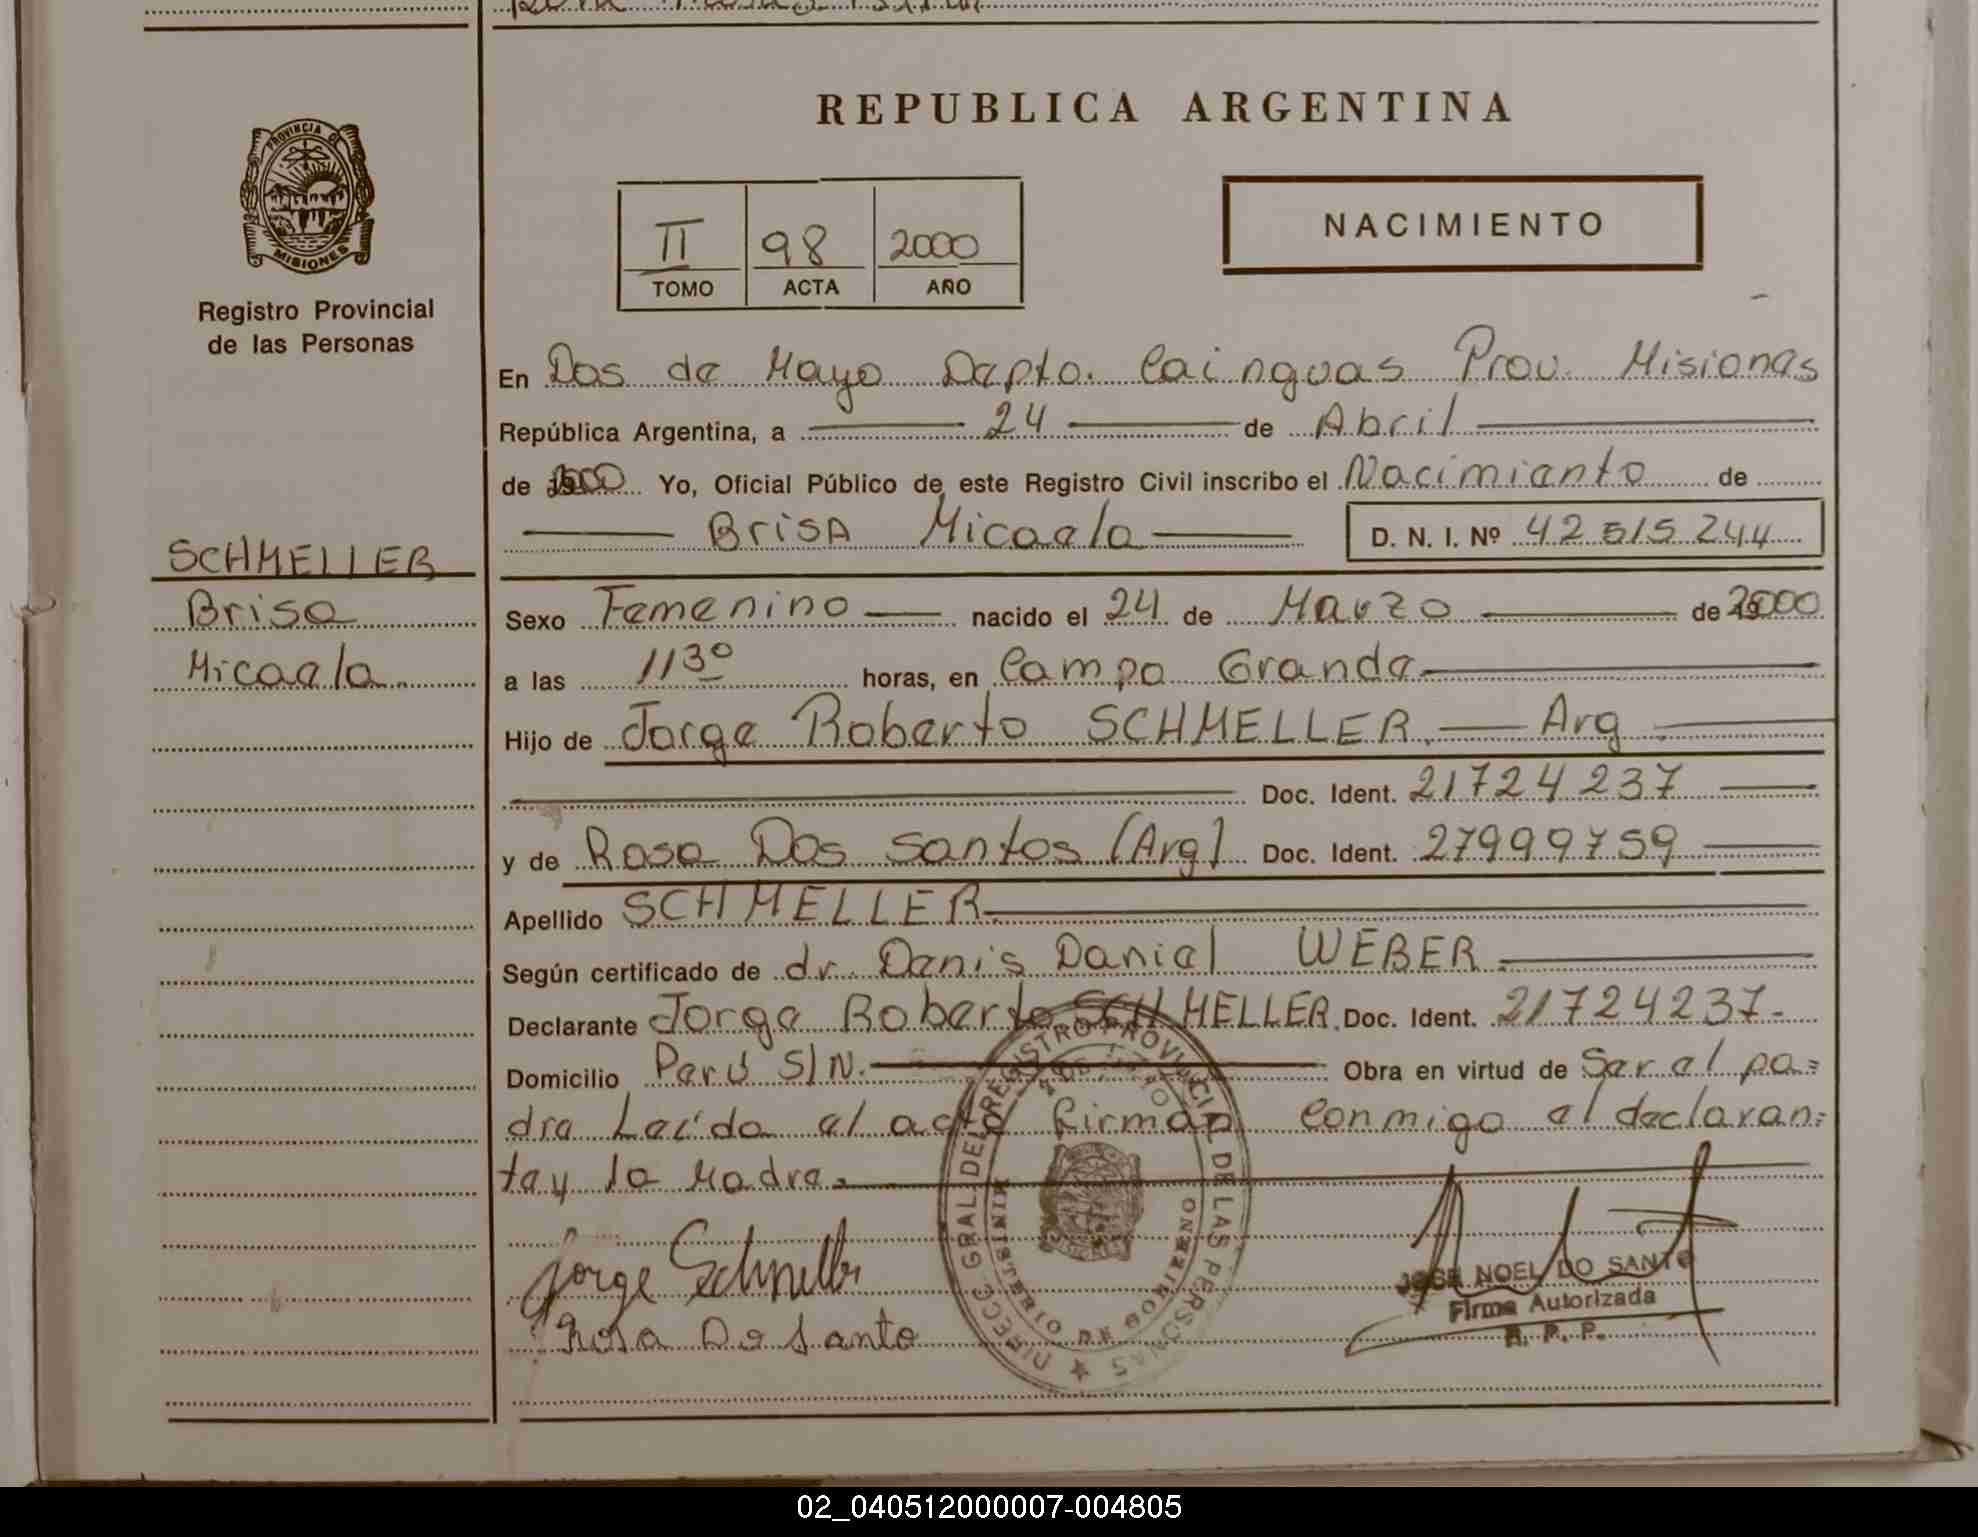 REPUBLICA ARGENTINA
PROVINCIA DE
MISIONES
Registro Provincial
de las Personas
II 98 2000
TOMO ACTA AÑO
NACIMIENTO
En Dos de Mayo Depto. Cainguas Prov. Misiones
República Argentina, a 24 de Abril
de 2000 Yo, Oficial Público de este Registro Civil inscribo el Nacimiento de
BrisA Micaela D. N. I. Nº 42515244
SCHMELLER
Brisa
Micaela
Sexo Femenino nacido el 24 de Marzo de 2000
a las 1130 horas, en Campo Grande
Hijo de Jorge Roberto SCHMELLER. Arg.
Doc. Ident. 21724237
y de Rosa Dos Santos (Arg) Doc. Ident. 27999759
Apellido SCHMELLER.
Según certificado de dr. Denis Daniel WEBER.
Declarante Jorge Roberto SCHMELLER. Doc. Ident. 21724237.
Domicilio Perú S/N. Obra en virtud de Ser el pa=
dre Leída el acta firman conmigo el declaran=
te y la Madre.
DIRECC. GRAL. DEL REGISTRO PROVINCIAL DE LAS PERSONAS
MINISTERIO DE GOBIERNO
Jorge Schmeller
Rosa Do Santo
JOSE NOEL DO SANTO
Firma Autorizada
R. P. P.
02_040512000007-004805